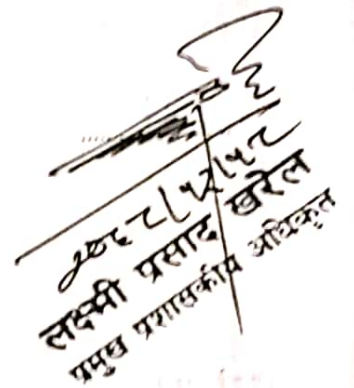 २०६८/१२/१८
लक्ष्मी प्रसाद खरेल
प्रमुख प्रशासकीय अधिकृत